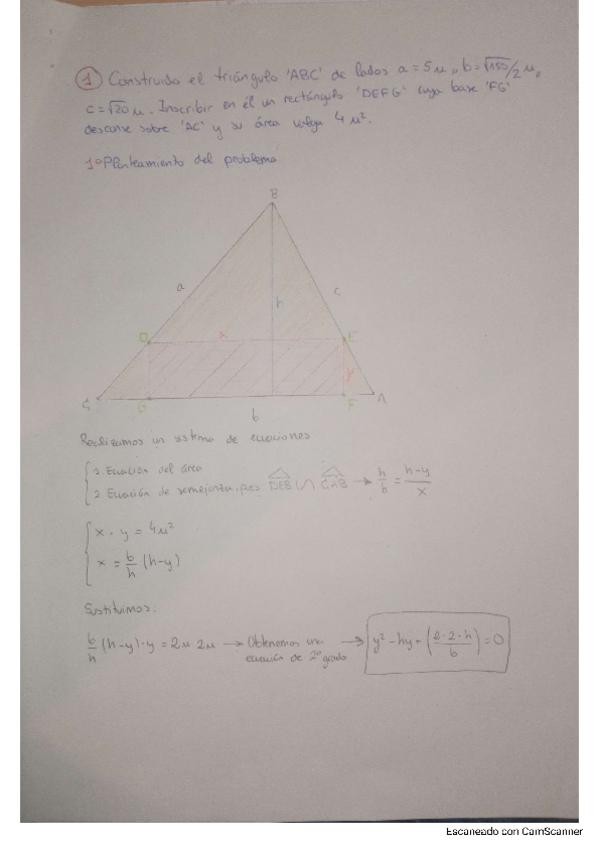 1 Construido el triángulo 'ABC' de lados a = 5u, b = √150/2 u,
c = √20 u. Inscribir en él un rectángulo 'DEFG' cuya base 'FG'
descanse sobre 'AC' y su área valga 4u².
1º Planteamiento del problema
B
a
c
h
D
x
E
y
C
G
F
A
b
Realizamos un sistema de ecuaciones
1. Ecuación del área
2. Ecuación de semejanza, pues DEB ∽ CAB → h/b = h-y/x
x · y = 4u²
x = b/h (h-y)
Sustituimos:
b/h (h-y)·y = 2u 2u → Obtenemos una ecuación de 2º grado → y² - hy + (2·2·h/b) = 0
Escaneado con CamScanner